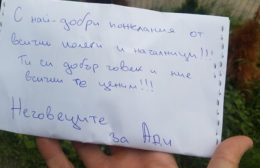 С най-добри пожелания от
всички колеги и началници!!!
Ти си добър човек и ние
всички те ценим!!!
Неговеците
за Ади